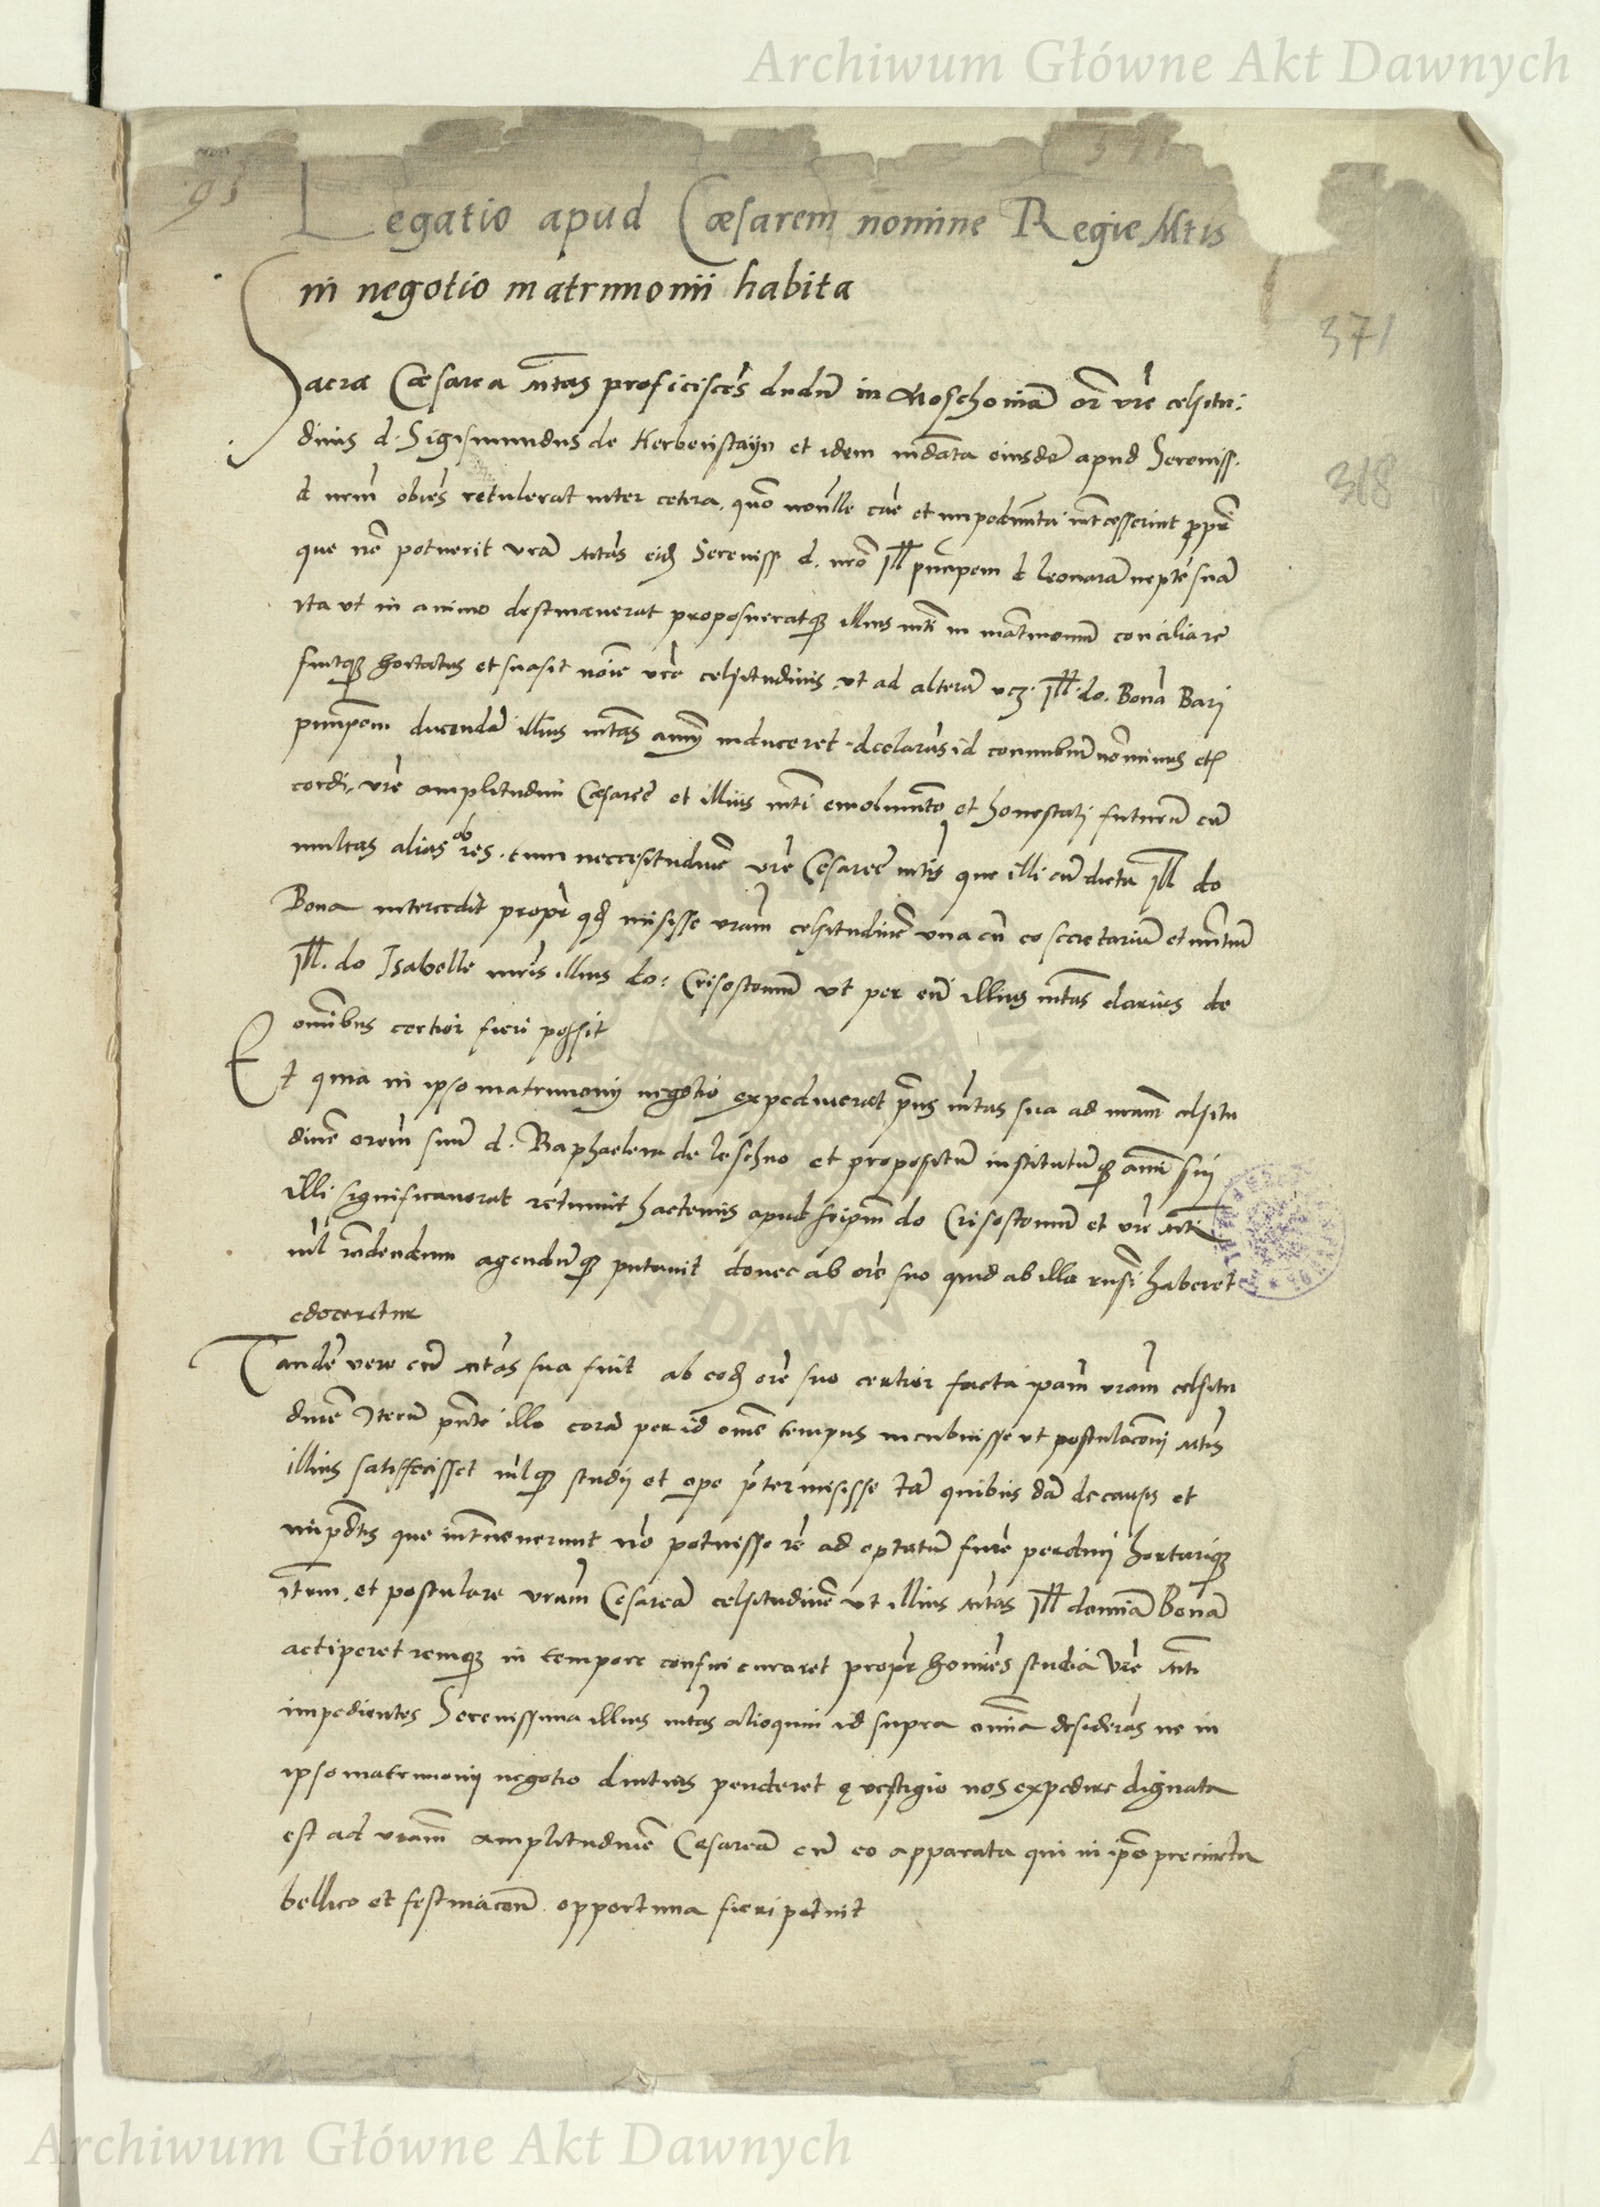 Archiwum Główne Akt Dawnych
95
371
Legatio apud Cæsarem nomine Regie Mtis
in negotio matrimonii habita
371
Sacra Cæsarea Mtas proficiscēs dudū in Moschoviā or̄ vrē celsitu:
dinis d. Sigismundus de Herbenstayn et idem mādata eiusdē apud Sereniss.
318
d nrm̄ obiēs retulerat inter cetera, quō nōnulle cāe et impedimēta intcesserint ppr̄
que nō potuerit vrā Mtas eidē Sereniss. d. nrō Jll principem d leonarā neptē suā
ita ut in animo destinaverat proposueratqȝ illius mti in matimoniū conciliare
fuitqȝ hortatus et suasit noīe vrē celsitudinis, ut ad alterā vcȝ. Jll. do. Bonā Bari
principem ducendā illius mtas animū induceret. declarās id connubiū nō minus
cordi, vrē amplitudini Cæsareē et illius mti emolumēto et honestati futurū cū
multas alias ob res. tum neccesitudinē vrē Cesareē mtis que illi cū dicta Jll do
Bona intercedit propr̄ qd misisse vram celsitudinē una cū eo secretariū et nūtiū
Jll. do Isabelle mr̄is illius do: Crisostomū ut per eū illius mtas clarius de
omībus certior fieri possit
Et quia in ipso matrimonij negotio expediverat prius mtas sua ad vram celsitu
dinē orem suū d. Raphaelem de leschno et propositū institutūqȝ animi sui
illi significaverat retinuit hactenus apud seipm̄ do Crisostomū et vrē Mti
nil rn̄dendum agendūqȝ putavit donec ab ore suo quid ab illa rn̄si haberet
edoceretur
Tandē vero cū Mtas sua fuit ab eodē ore suo certior facta ipam vram celsitu
dinē Iterū pn̄te illo corā per id omē tempus incubuisse ut postulacōni Mtis
illius satisfecisset nilqȝ studij et ope pr̄termisisse tā quibus dā de causis et
impedītis que intvenerunt nō potuisse rē ad optatū finē perduci hortariqȝ
Itm. et postulare vram Cesareā celsitudinē ut illius Mtas Jll domīā Bonā
acciperet remqȝ in tempore confici curaret propr̄ homīes studia vrē Mti
impedientes Serenissima illius mtas alioquin id supra omīa desiderās ne in
ipso matrimonij negotio diutius penderet e vestigio nos expedire dignata
est ad vram amplitudinē Cæsareā cū eo apparatu qui in ipo precinctu
bellico et festinacōne opportuna fieri potuit
Archiwum Główne Akt Dawnych